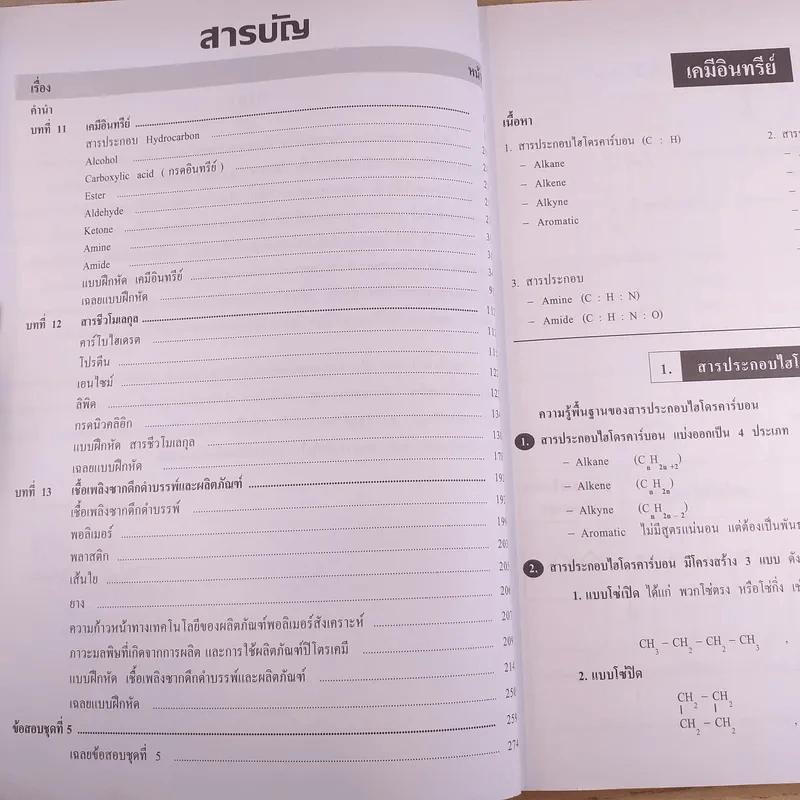 สารบัญ
เรื่อง
คำนำ
บทที่ 11 เคมีอินทรีย์
สารประกอบ Hydrocarbon
Alcohol
Carboxylic acid ( กรดอินทรีย์ )
Ester
Aldehyde
Ketone
Amine
Amide
แบบฝึกหัด เคมีอินทรีย์
เฉลยแบบฝึกหัด
บทที่ 12 สารชีวโมเลกุล
คาร์โบไฮเดรต
โปรตีน
เอนไซม์
ลิพิด
กรดนิวคลิอิก
แบบฝึกหัด สารชีวโมเลกุล
เฉลยแบบฝึกหัด
บทที่ 13 เชื้อเพลิงซากดึกดำบรรพ์และผลิตภัณฑ์
เชื้อเพลิงซากดึกดำบรรพ์
พอลิเมอร์
พลาสติก
เส้นใย 205
ยาง 206
ความก้าวหน้าทางเทคโนโลยีของผลิตภัณฑ์พอลิเมอร์สังเคราะห์ 207
ภาวะมลพิษที่เกิดจากการผลิต และการใช้ผลิตภัณฑ์ปิโตรเคมี 209
แบบฝึกหัด เชื้อเพลิงซากดึกดำบรรพ์และผลิตภัณฑ์ 214
เฉลยแบบฝึกหัด 250
ข้อสอบชุดที่ 5 259
เฉลยข้อสอบชุดที่ 5 274
เคมีอินทรีย์
เนื้อหา
1. สารประกอบไฮโดรคาร์บอน (C : H)
– Alkane
– Alkene
– Alkyne
– Aromatic
2.
3. สารประกอบ
– Amine (C : H : N)
– Amide (C : H : N : O)
1. สารประกอบไฮโ
ความรู้พื้นฐานของสารประกอบไฮโดรคาร์บอน
1. สารประกอบไฮโดรคาร์บอน แบ่งออกเป็น 4 ประเภท
– Alkane (CnH2n+2)
– Alkene (CnH2n)
– Alkyne (CnH2n – 2)
– Aromatic ไม่มีสูตรแน่นอน แต่ต้องเป็นพันธ
2. สารประกอบไฮโดรคาร์บอน มีโครงสร้าง 3 แบบ ดัง
1. แบบโซ่เปิด ได้แก่ พวกโซ่ตรง หรือโซ่กิ่ง เช่
CH3 – CH2 – CH2 – CH3 ,
2. แบบโซ่ปิด
CH2 – CH2
CH2 – CH2